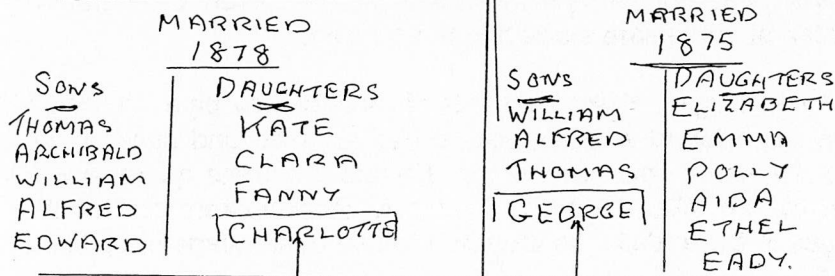 MARRIED
1878
SONS
THOMAS
ARCHIBALD
WILLIAM
ALFRED
EDWARD
DAUGHTERS
KATE
CLARA
FANNY
CHARLOTTE
MARRIED
1875
SONS
WILLIAM
ALFRED
THOMAS
GEORGE
DAUGHTERS
ELIZABETH
EMMA
POLLY
AIDA
ETHEL
EADY.